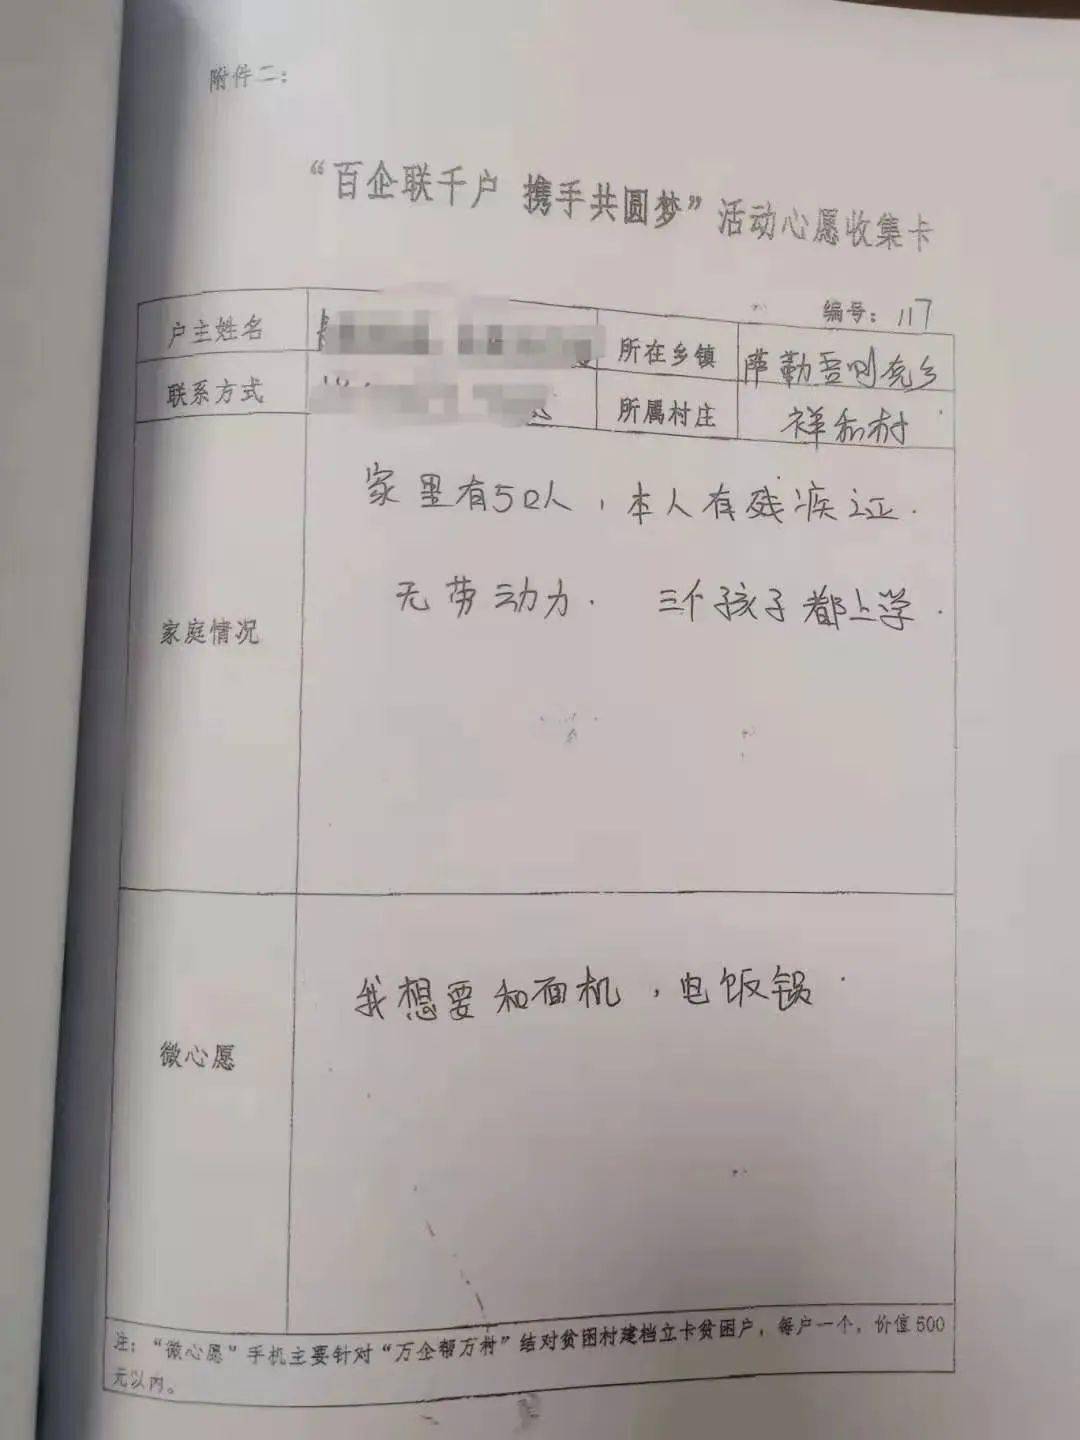 附件二：
“百企联千户 携手共圆梦”活动心愿收集卡
编号：117
户主姓名
所在乡镇 萨勒吾则克乡
联系方式
所属村庄 祥和村
家庭情况
家里有5口人，本人有残疾证.
无劳动力. 三个孩子都上学.
微心愿
我想要和面机，电饭锅.
注：“微心愿”手机主要针对“万企帮万村”结对贫困村建档立卡贫困户，每户一个，价值500
元以内。